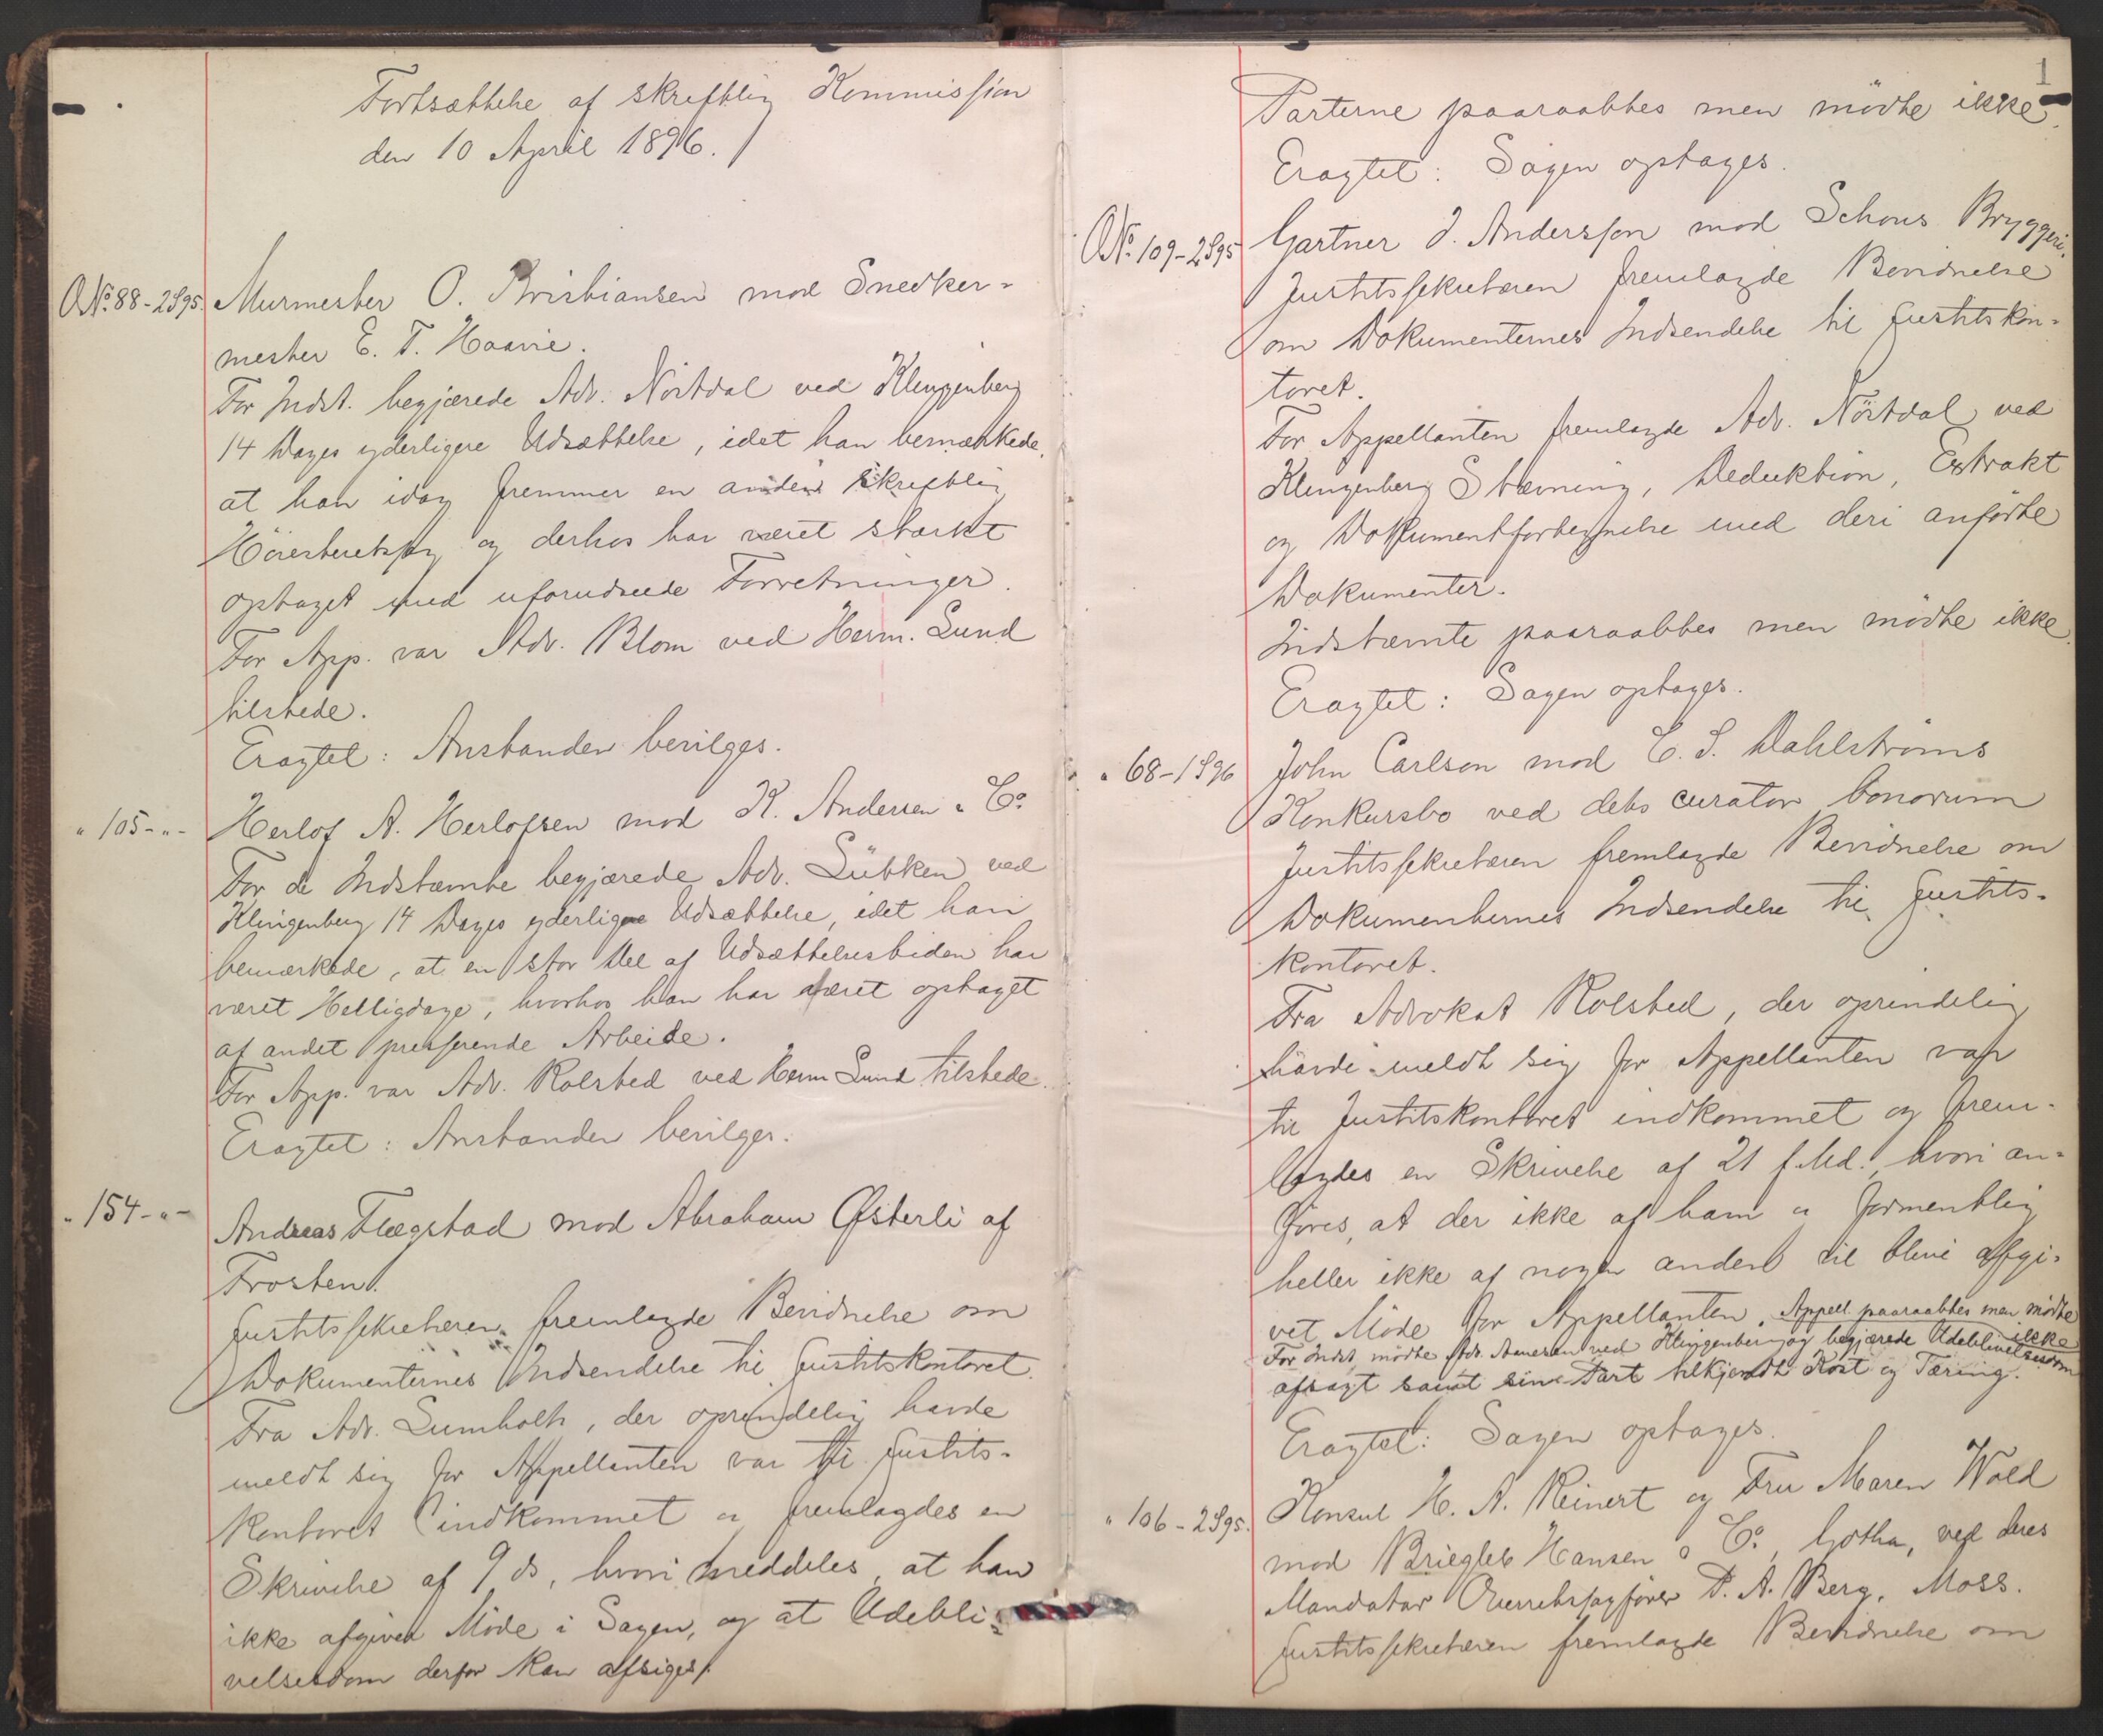 Fortsættelse af skriftlig Kommission
den 10 April 1896.
O№ 88-2S95. Murmester O. Kristiansen mod Snedker-
mester E. T. Haavie.
For Indst. begjærede Adv. Nörtdal ved Klingenberg
14 Dages yderligere Udsættelse, idet han bemærkede,
at han idag fremmer en anden skriftlig
Höiesteretssag og derhos har været stærkt
optaget med uforudseede Forretninger.
For App. var Adv. Blom ved Herm. Lund
tilstede.
Eragtet: Anstanden bevilges.
" 105-"- Herlof A. Herlofsen mod K. Andersen & Co.
For de Indstævnte begjærede Adv. Lübken ved
Klingenberg 14 Dages yderligere Udsættelse, idet han
bemærkede, at en stor Del af Udsættelsestiden har
været Helligdage, hvorhos han har været optaget
af andet presserende Arbeide.
For App. var Adv. Rolsted ved Herm Lund tilstede.
Eragtet: Anstanden bevilges.
" 154-"- Andreas Flægstad mod Abraham Østerli af
Frosten.
Justitssekretæren fremlagde Bevidnelse om
Dokumenternes Indsendelse til Justitskontoret.
Fra Adv. Lumholtz, der oprindelig havde
meldt sig for Appellanten var til Justits-
kontoret indkommet og fremlagdes en
Skrivelse af 9 ds, hvori meddeles, at han
ikke afgiver Möde i Sagen, og at Udebli-
velsesdom derfor kan afsiges.
1
Parterne paaraabtes men mödte ikke.
Eragtet: Sagen optages.
O№ 109-2S95 Gartner J. Andersson mod Schous Bryggeri.
Justitssekretæren fremlagde Bevidnelse
om Dokumenternes Indsendelse til Justitskon-
toret.
For Appellanten fremlagde Adv. Nörtdal ved
Klingenberg Stævning, Deduktion, Extrakt
og Dokumentfortegnelse med deri anförte
Dokumenter.
Indstævnte paaraabtes men mödte ikke.
Eragtet: Sagen optages.
" 68-1S96 John Carlson mod C. S. Dahlströms
Konkursbo ved dets curator bonorum
Justitssekretæren fremlagde Bevidnelse om
Dokumenternes Indsendelse til Justits-
kontoret.
Fra Advokat Rolsted, der oprindelig
havde meldt sig for Appellanten var
til Justitskontoret indkommet og frem-
lagdes en Skrivelse af 21 f. Md., hvori an-
föres, at der ikke af ham og formentlig
heller ikke af nogen anden vil blive afgi-
vet Möde for Appellanten. Appell. paaraabtes men mödte ikke
For Indst. mödte Adv. ved Klingenberg og begjærede Udeblivelsesdom
afsagt samt sin Part tilkjendt Kost og Tæring.
Eragtet: Sagen optages.
" 106-2S95. Konsul H. A. Reinert og Fru Maren Wold
mod Briegleb Hansen & Co, Gotha, ved deres
Mandatar Overretssagförer P. A. Berg, Moss.
Justitssekretæren fremlagde Bevidnelse om